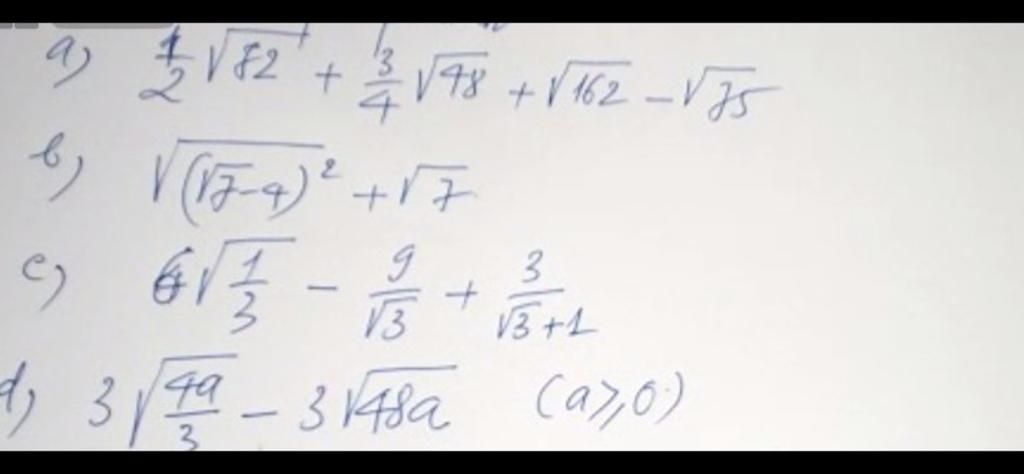 a) 1/2 √82 + 3/4 √48 + √162 - √75
b) √((√7 - 4)²) + √7
c) 6√(1/3) - 9/√3 + 3/(√3 + 1)
d) 3√(4a/3) - 3√48a (a ≥ 0)